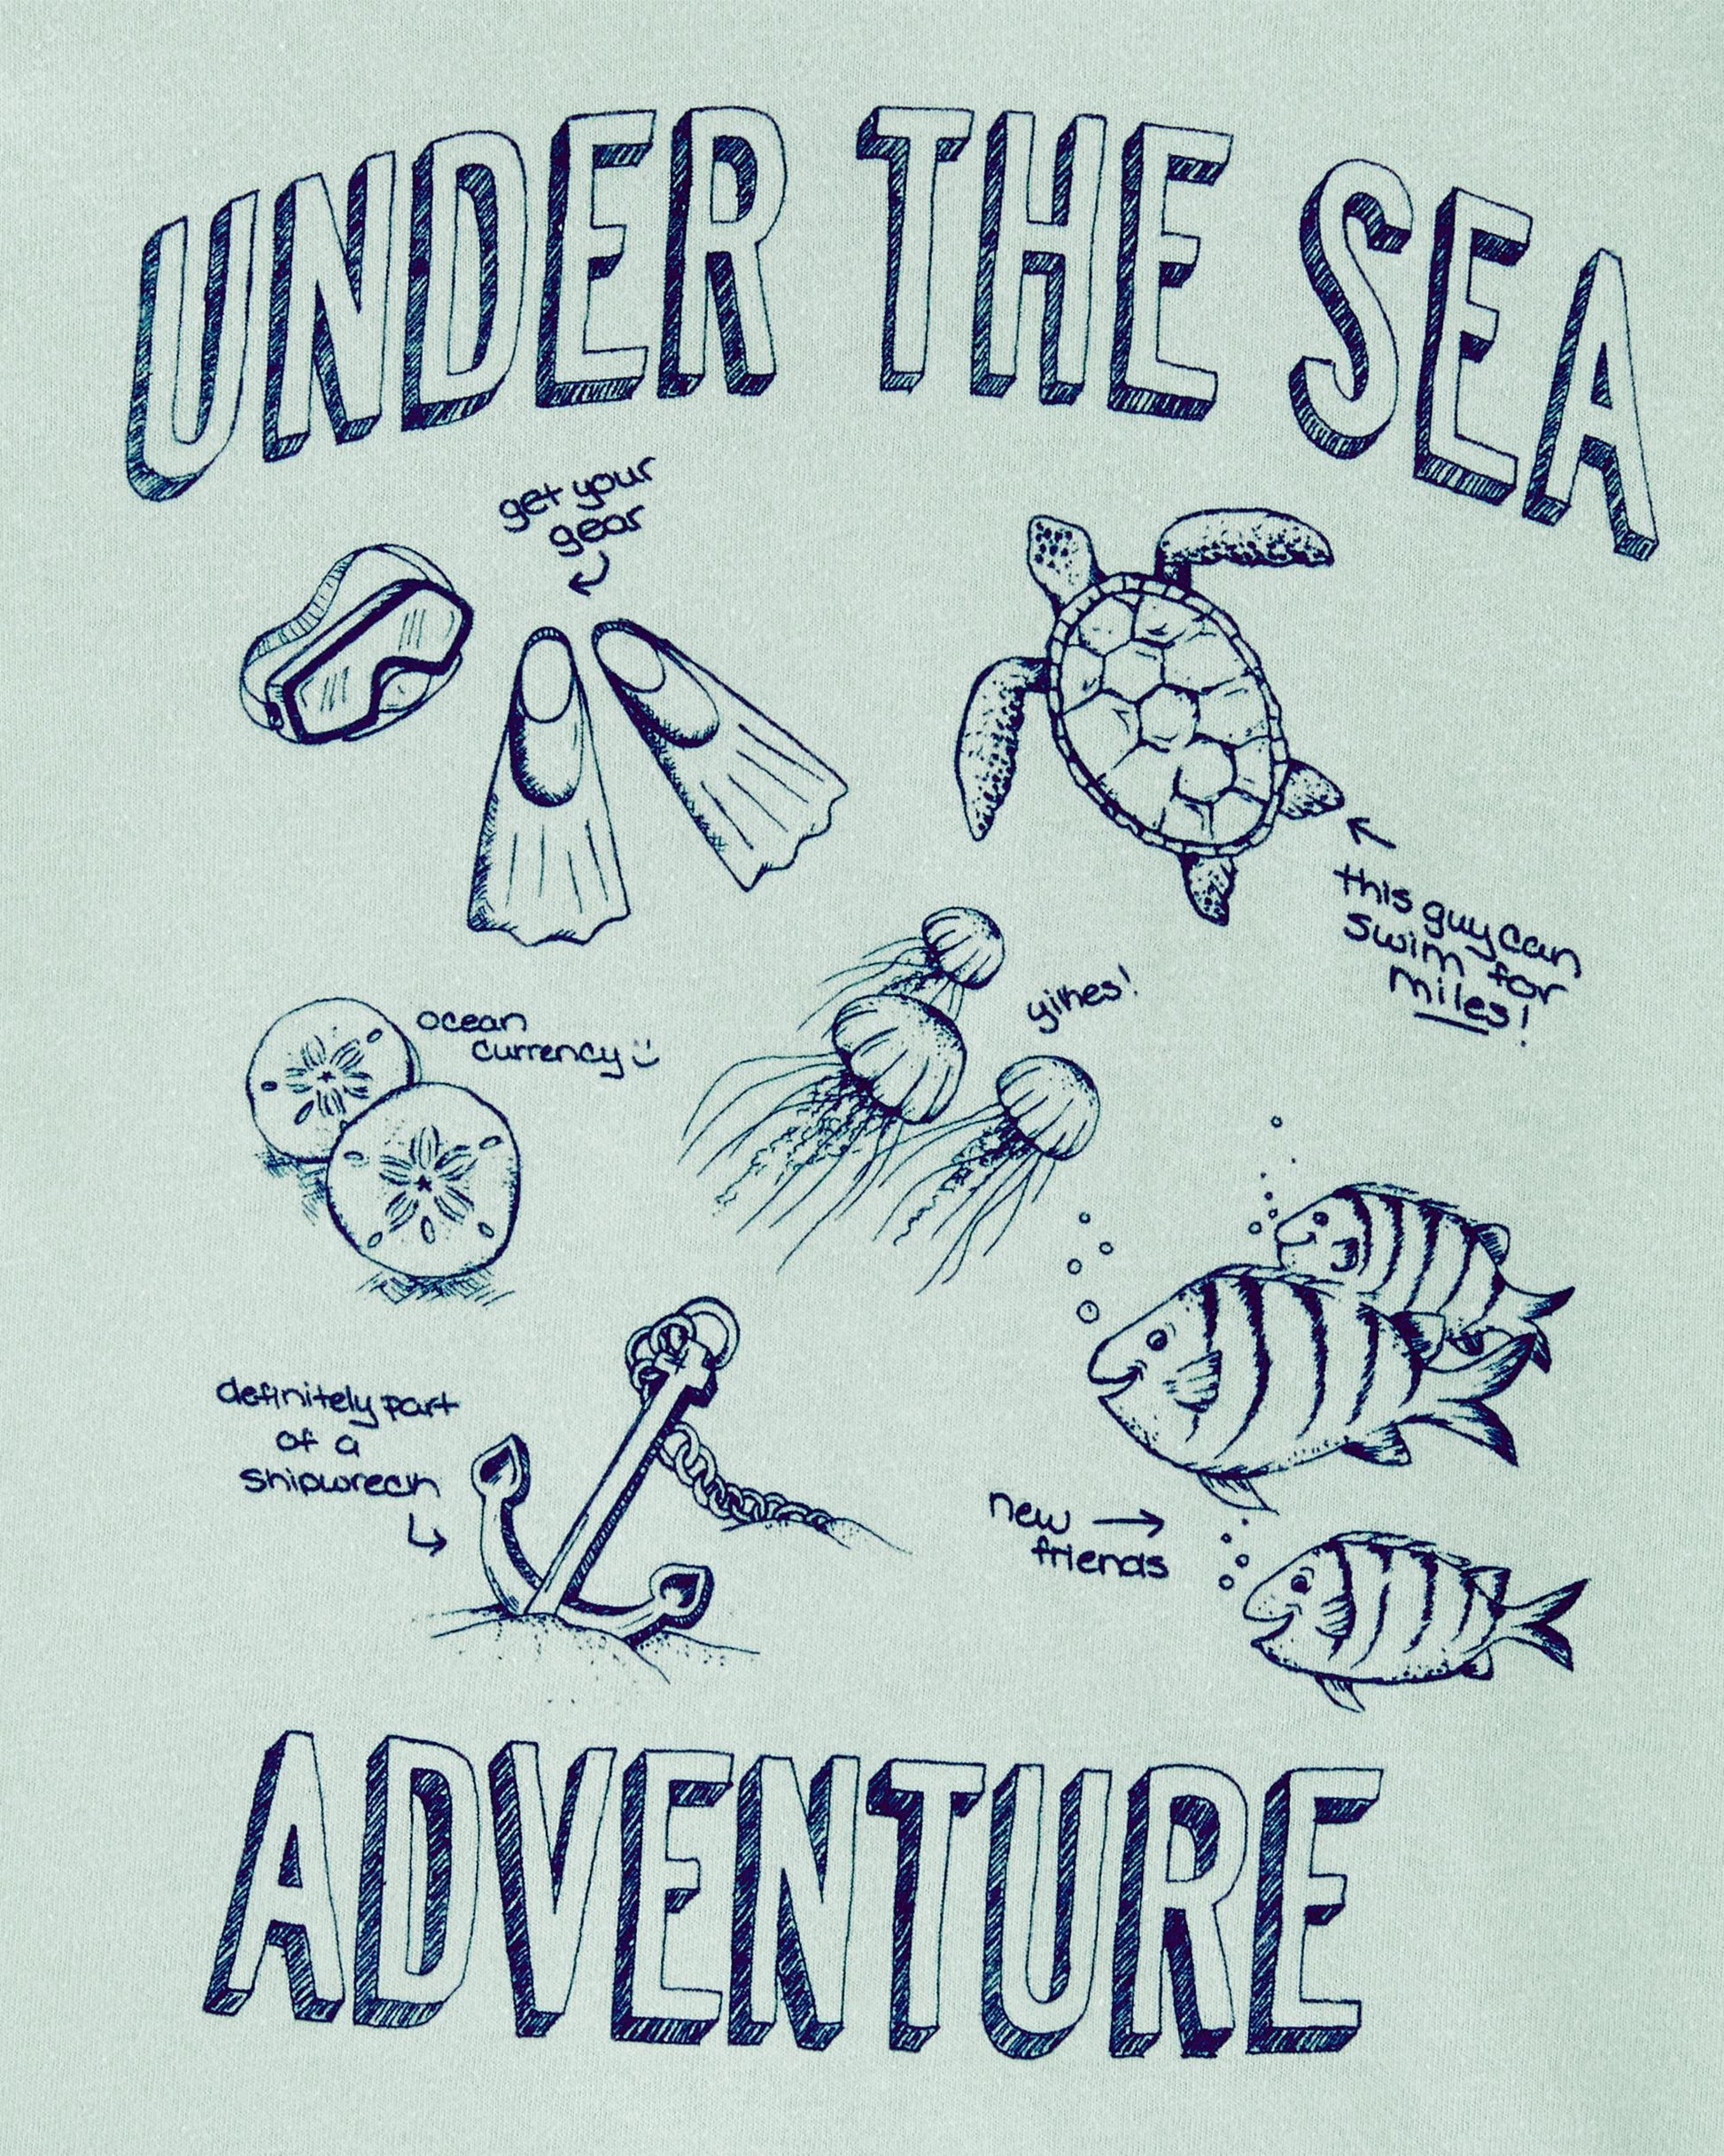 UNDER THE SEA
get your
gear
this guy can
swim for
miles!
yikes!
ocean
currency
definitely part
of a
shipwreck
new
friends
ADVENTURE